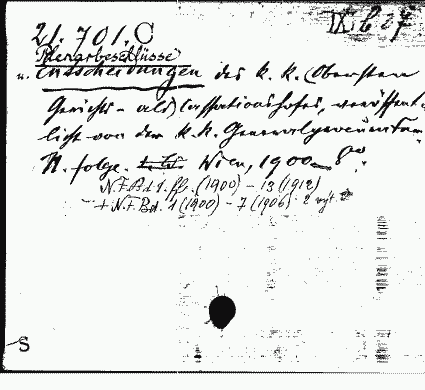 21.701.C
IX b 27
Plenarbeschlüsse
u. Entscheidungen des k. k. Obersten
Gerichts- als Cassationshofes, veröffent-
licht von der k. k. Generalprocuratur.
N. Folge. Wien, 1900– 8º.
N.F. Bd. 1. ff. (1900) – 13 (1912)
+ N.F. Bd. 1 (1900) – 7 (1906) 2 výt.
S